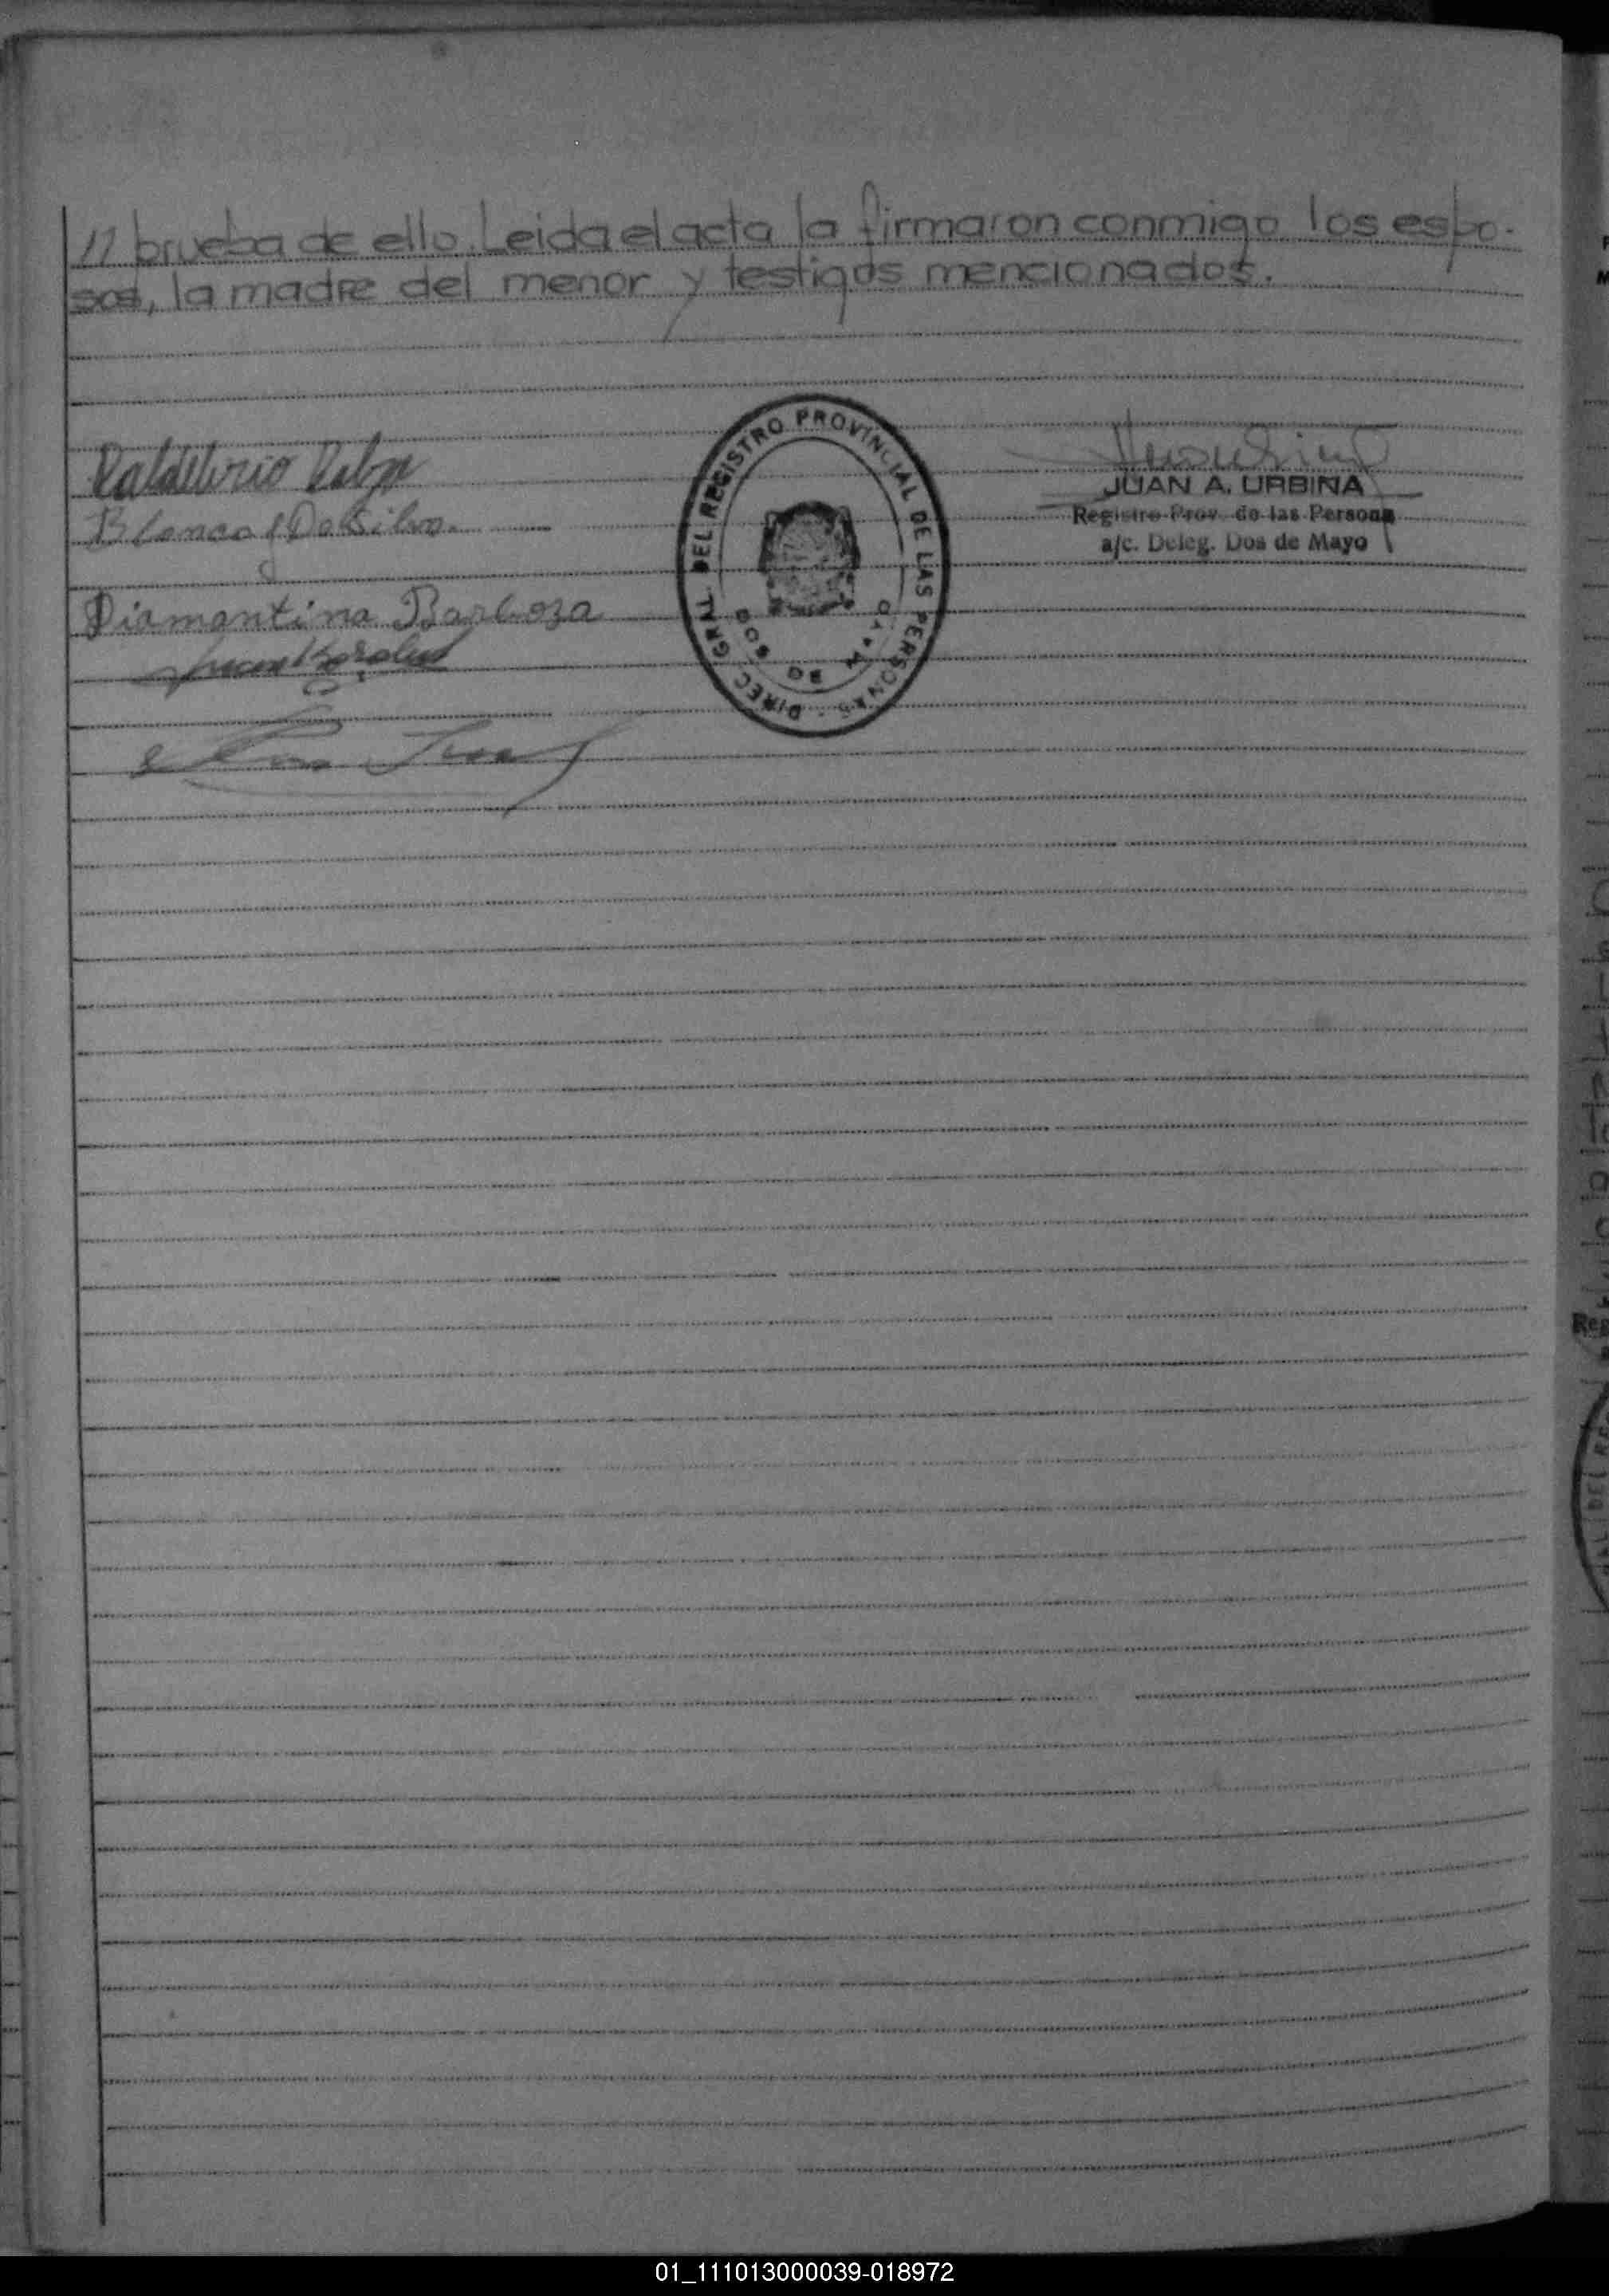 11 prueba de ello. Leida el acta la firmaron conmigo los espo-
sos, la madre del menor y testigos mencionados.
Blanca
Da Silva.
Diamantina Barboza
DIREC GRAL. DEL REGISTRO PROVINCIAL DE LAS PERSONAS
DOS DE MAYO
JUAN A. URBINA
Registro Prov. de las Persona
a/c. Deleg. Dos de Mayo
01_111013000039-018972